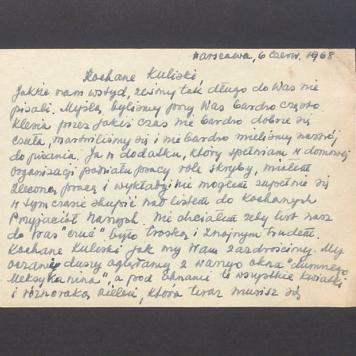 Warszawa, 6 Czerw. 1968
Kochane Kuliski,
Jakże nam wstyd, żeśmy tak długo do Was nie
pisali. Myślą byliśmy przy Was bardzo często
Klenia przez jakiś czas nie bardzo dobrze się
czuła, martwiliśmy się i nie bardzo mieliśmy nastrój
do pisania. Ja w dodatku, który spełniam w domowej
organizacji podziału pracy rolę skryby, miałem
zleconą pracę i wykłady i nie mogłem zupełnie się
w tym czasie skupić nad listem do Kochanych
Przyjaciół Naszych. Nie chciałem żeby list nasz
do Was był troską i znojnym trudem.
Kochane Kuliski jak my Wam zazdrościmy. My
oczami duszy oglądamy z Waszego okna "dumnego
Meksykanina", a pod oknami te wszystkie kwiatki
i różnoraką zieleń, która teraz musi się